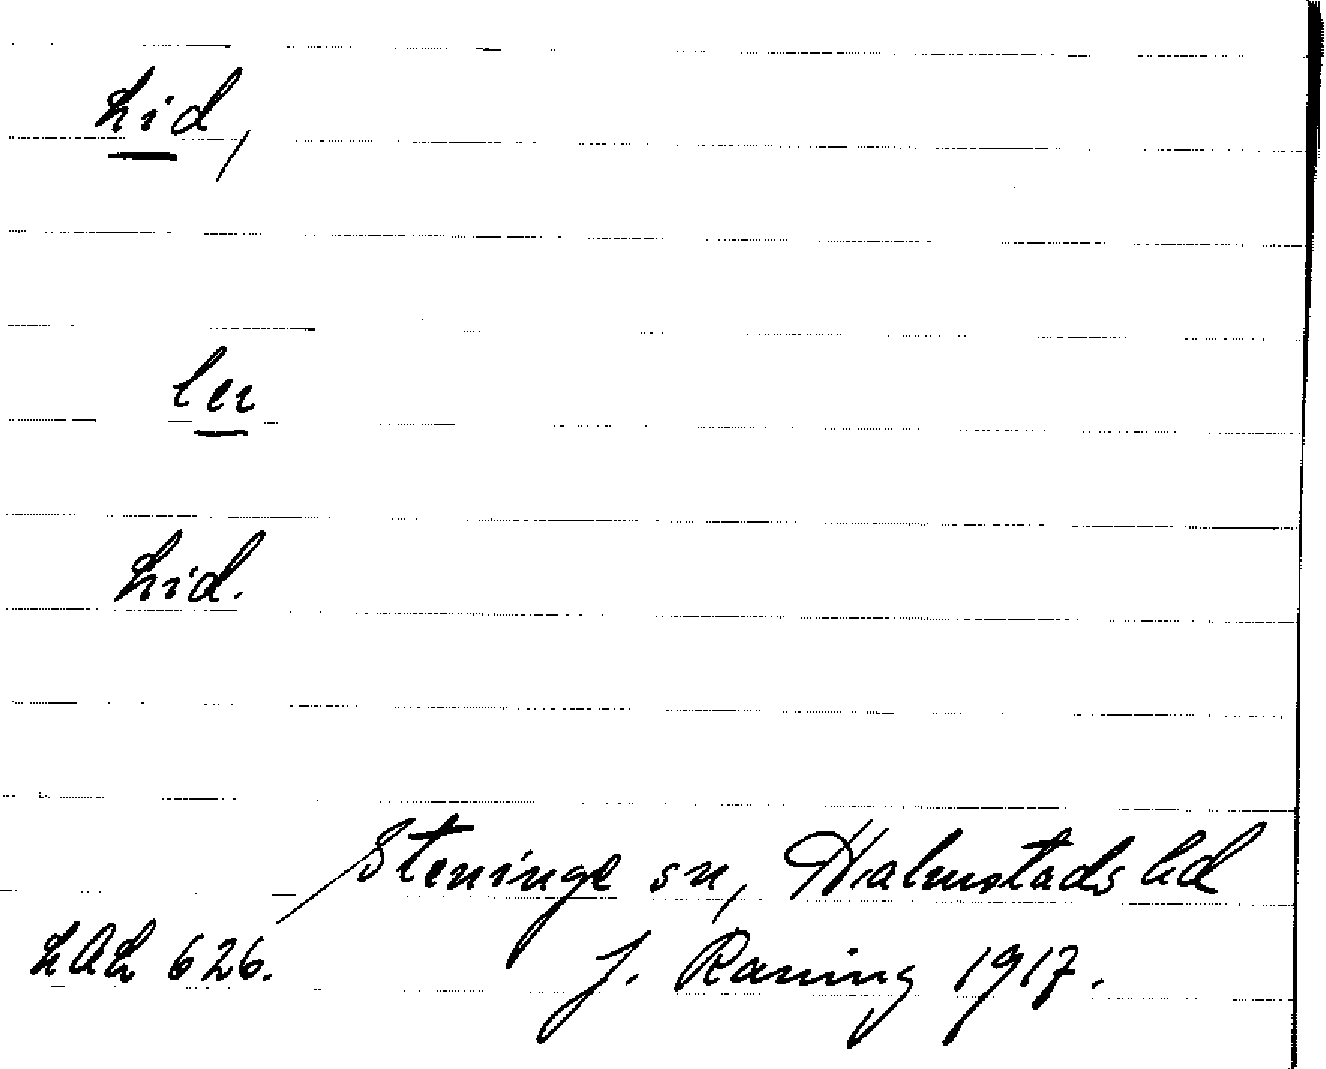 Lid,
ler
Lid.
Steninge sn, Halmstads hd
LAL 626. J. Raning 1917.